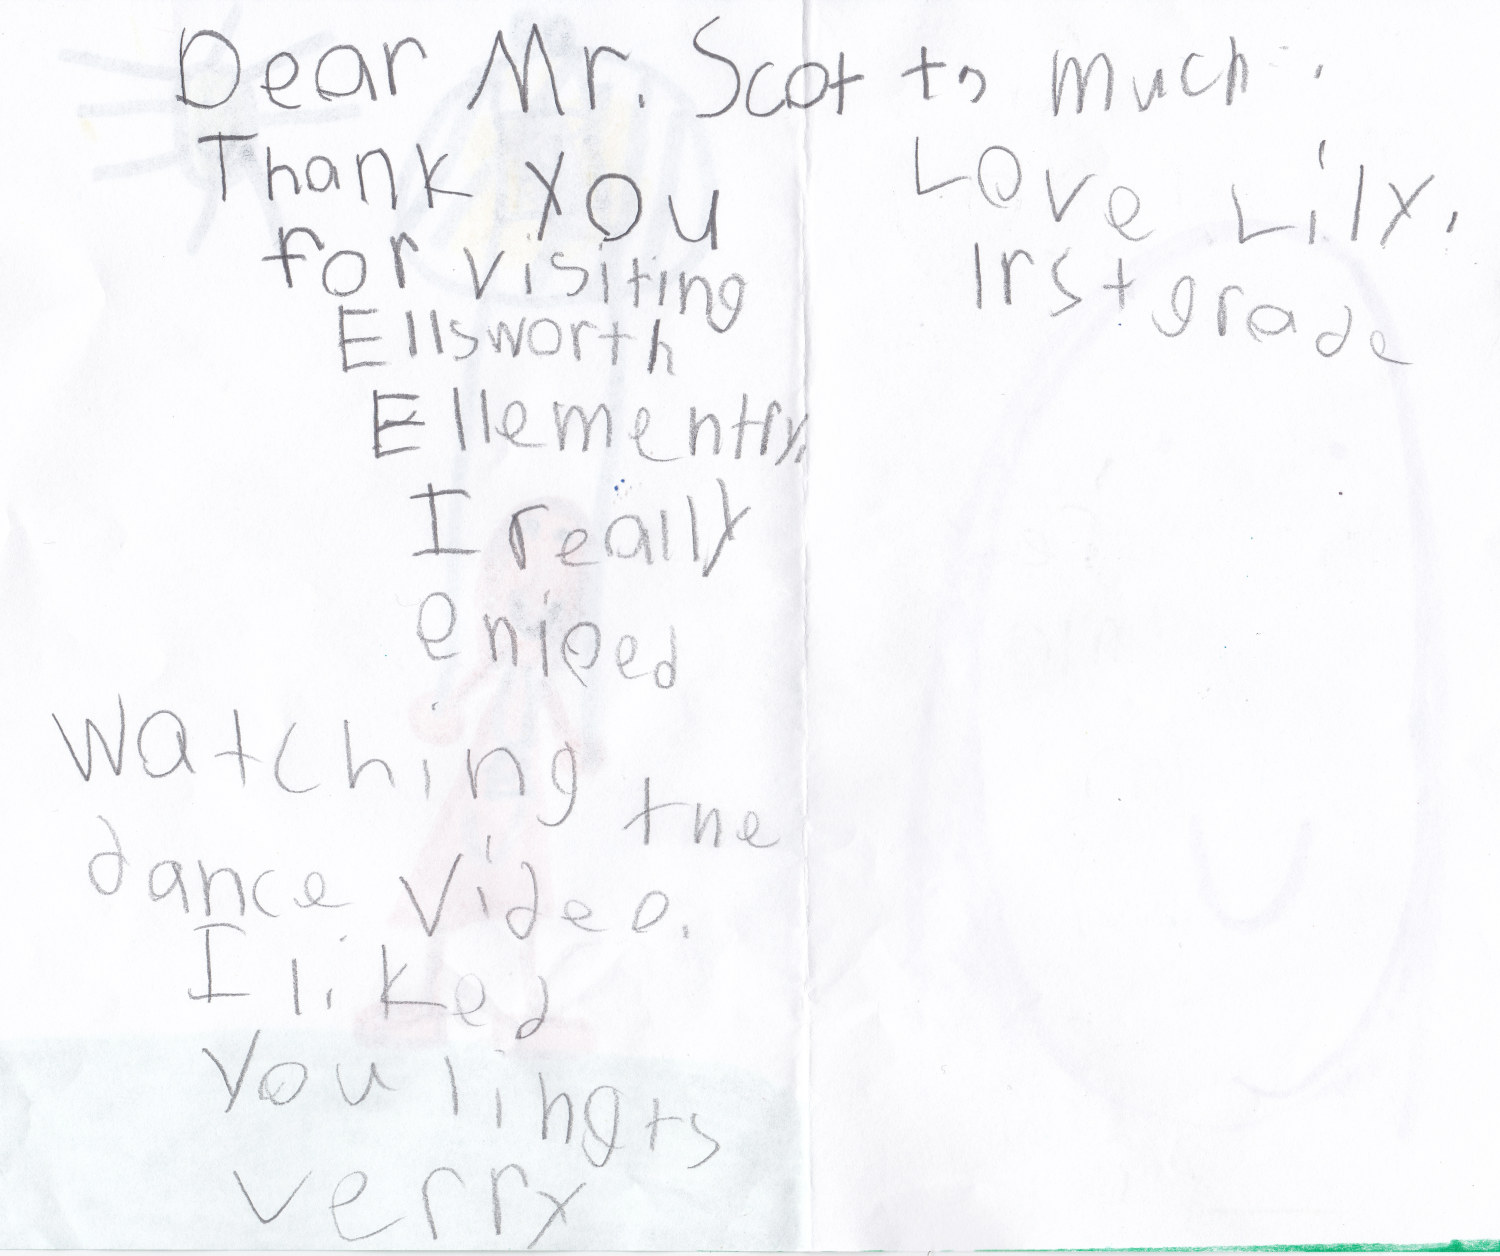 Dear Mr. Scot
Thank you
for visiting
Ellsworth
Ellementry.
I really
enjoed
watching the
dance video.
I liked
you lihgts
verry
to much.
Love Lily.
1rst grade